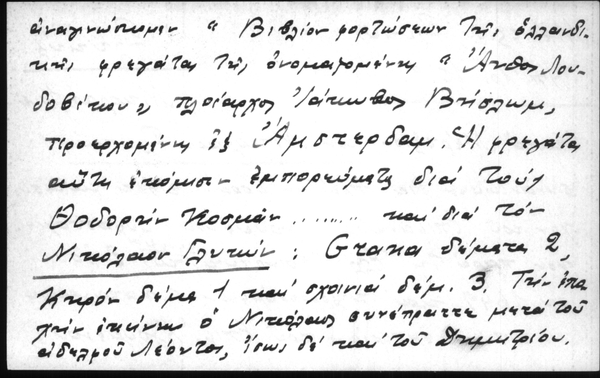 ἀναγινώσκομεν " Βιβλίον φορτώσεων τῆς ὁλλανδι-
κῆς φρεγάτας τῆς ὀνομαζομένης " Ἄνθος Λου-
δοβίκου", πλοίαρχος Ἰάκωβος
προερχομένης ἐξ Ἄμστερδαμ. Ἡ φρεγάτα
αὕτη ἐκόμισεν ἐμπορεύματα διά τούς
Θοδορήν Κοσμᾶν ......... καί διά τόν
Νικόλαον Γλυκύν : Grana δέματα 2,
Κηρόν δέμα 1 καί σχοινιά δέμ. 3. Τήν ἐπο
χήν ἐκείνην ὁ Νικόλαος συνέπραττε μετά τοῦ
ἀδελφοῦ Λέοντος, ἴσως δέ καί τοῦ Δημητρίου.